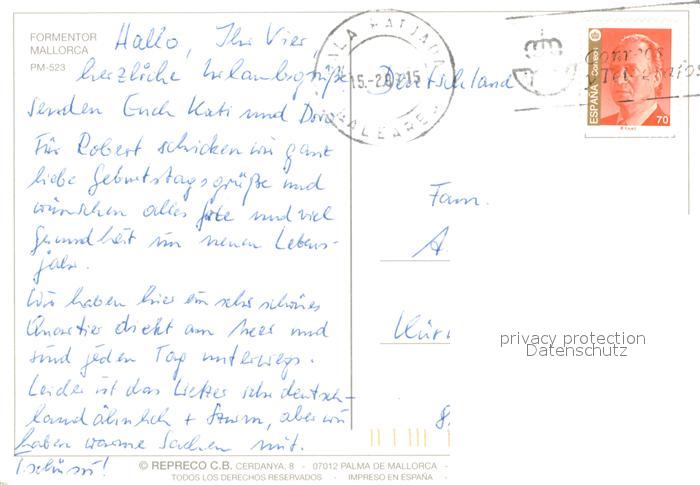 FORMENTOR
MALLORCA
PM-523
Hallo, Ihr Vier,
herzliche Urlaubsgrüße
senden Euch Kati und Doro
Für Robert schicken wir ganz
liebe Geburtstagsgrüße und
wünschen alles Gute und viel
Gesundheit im neuen Lebens-
jahr.
Wir haben hier ein sehr schönes
Quartier direkt am Meer und
sind jeden Tag unterwegs.
Leider ist das Wetter sehr deutsch-
landähnlich + Sturm, aber wir
haben warme Sachen mit.
Tschüss!
Deutschland
Fam.
A
8
BALEARES
Correos
y Telegrafos
ESPAÑA
Correos
70
privacy protection
Datenschutz
© REPRECO C.B. CERDANYA, 8 - 07012 PALMA DE MALLORCA -
TODOS LOS DERECHOS RESERVADOS - IMPRESO EN ESPAÑA -